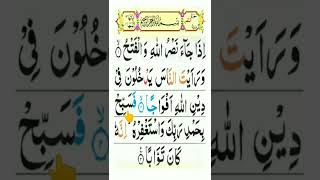 بِسْمِ اللهِ الرَّحْمٰنِ الرَّحِيْمِ
اِذَا جَآءَ نَصْرُ اللهِ وَالْفَتْحُ
وَرَاَيْتَ النَّاسَ يَدْخُلُوْنَ فِيْ
دِيْنِ اللهِ اَفْوَاجًا فَسَبِّحْ
بِحَمْدِ رَبِّكَ وَاسْتَغْفِرْهُ اِنَّهٗ
كَانَ تَوَّابًا